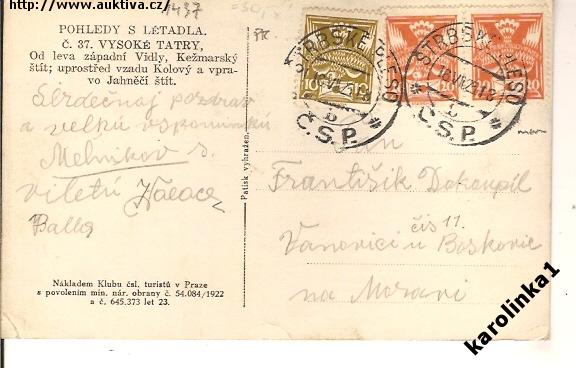 http://www.auktiva.cz/
1437
POHLEDY S LÉTADLA.
Č. 37. VYSOKÉ TATRY,
Od leva západní Vidly, Kežmarský
štít; uprostřed vzadu Kolový a vpra-
vo Jahněčí štít.
Srdečnaj pozdrav
a velkú vspominku
Melnikov s.
viletú
Balla
Nákladem Klubu čsl. turistů v Praze
s povolením min. nár. obrany č. 54.084/1922
a č. 645.373 let 23.
Patisk vyhražen.
ŠTRBSKÉ PLESO
Č.S.P.
10 10
ŠTRBSKÉ PLESO
Č.S.P.
20 20
František Dokoupil
čís 11.
Vanovici u Boskovic
na Moravi
karolinka1